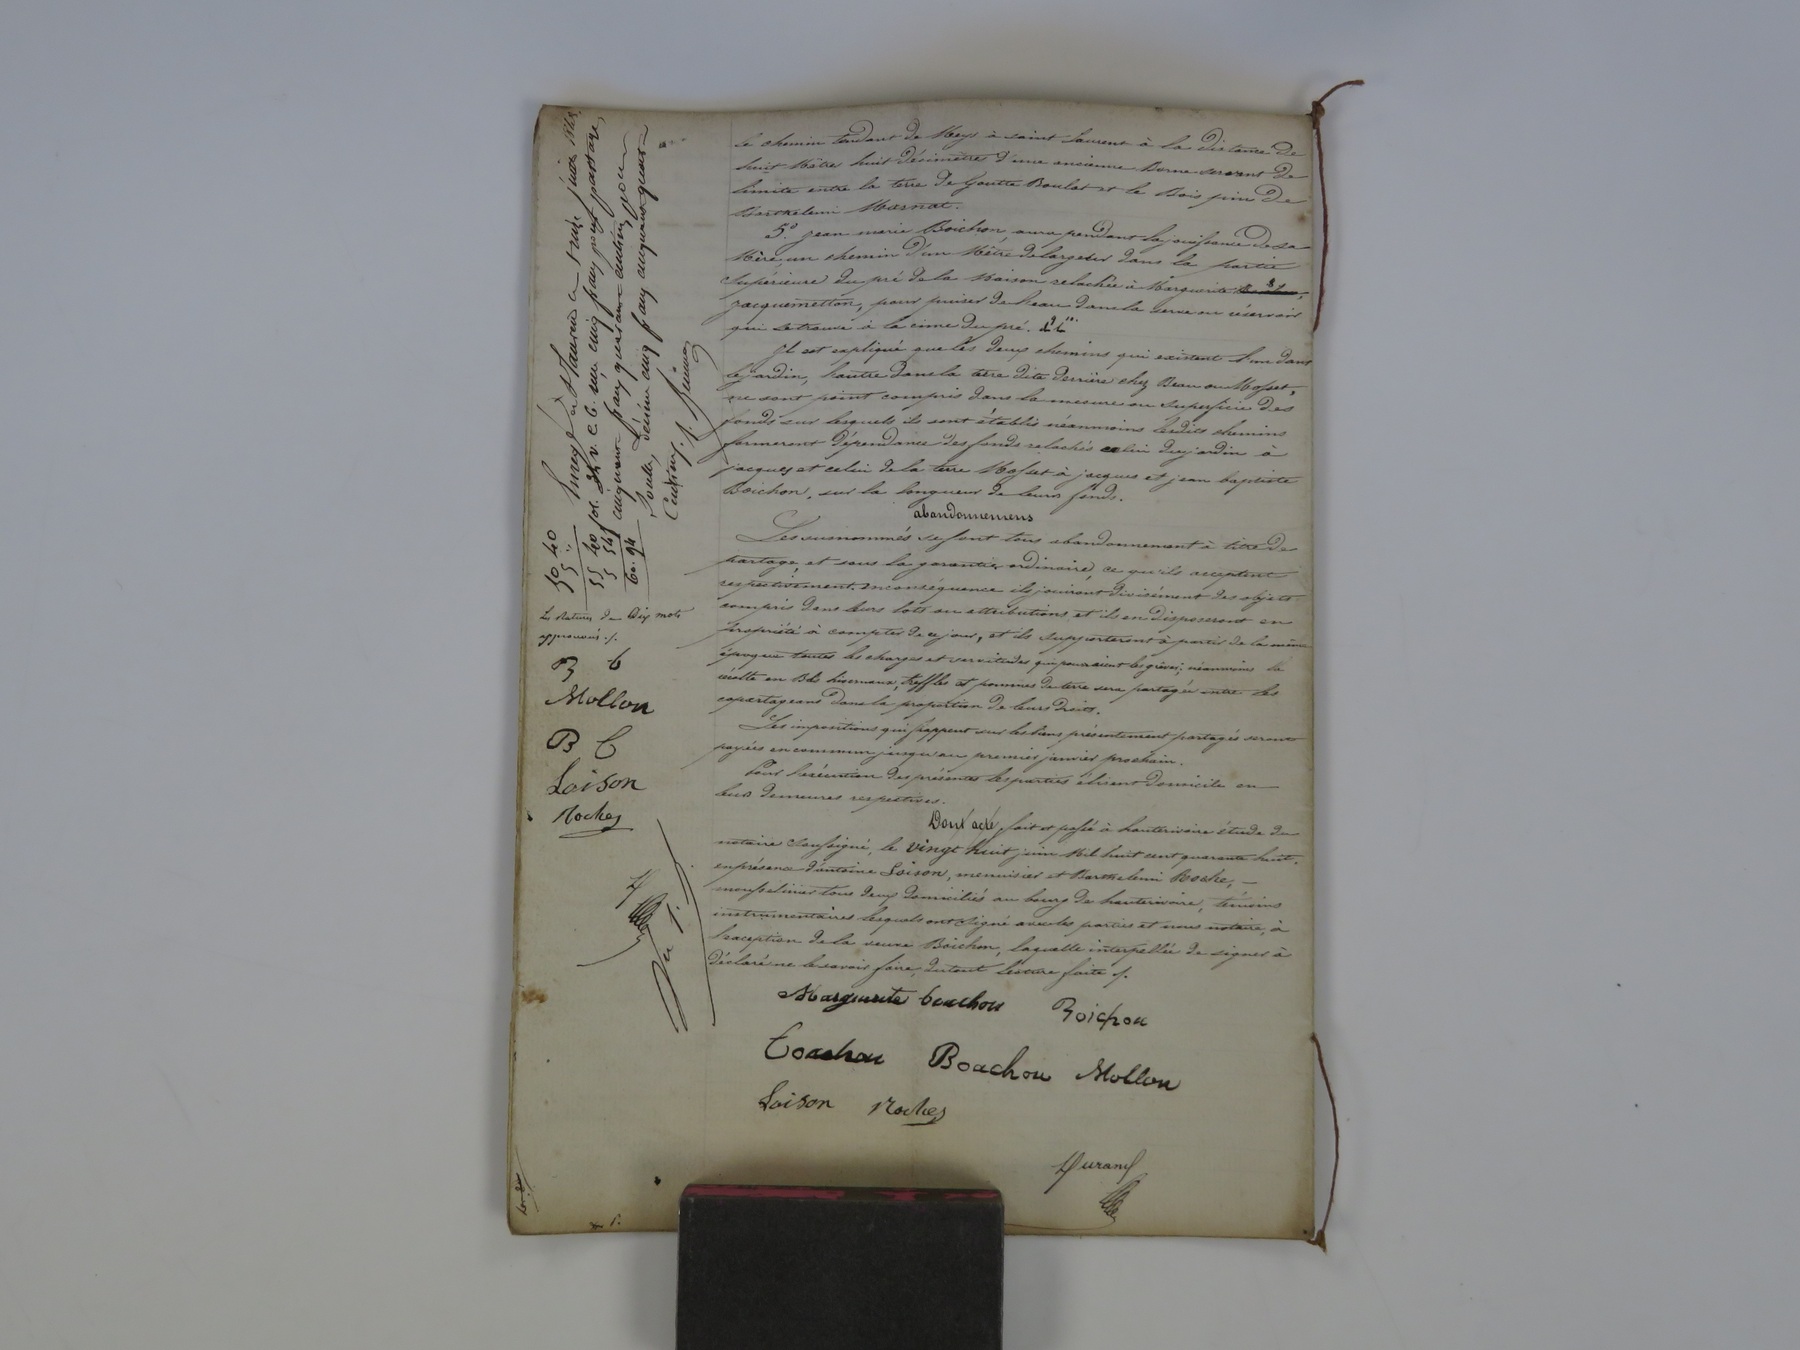 le chemin tendant de Meys à saint Laurent à la distance de
huit Mètres huit décimètres d'une ancienne Borne servant de
limite entre la terre de Goutte Boulat et le Bois pins de
Barthélemi Masnat.
5.º Jean marie Boichon, aura pendant la jouissance de sa
Mère, un chemin d'un Mètre de largeur dans la partie
Supérieure du pré de la Maison relachée à Marguerite
Jacquemetton, pour puiser de l'eau dans la serve ou réservoir
qui se trouve à la cime du pré.
Il est expliqué que les deux chemins qui existent l'un dans
le jardin, l'autre dans la terre dite Derrière chez Beau ou Mosset,
ne sont point compris dans la mesure ou superficie des
fonds sur lesquels ils sont établis néanmoins lesdits chemins
formeront dépendance des fonds relachés celui du jardin à
jacques et celui de la terre Mosset à jacques et jean baptiste
Boichon, sur la longueur de leurs fonds.
abandonnemens
Les susnommés se font tous abandonnement à titre de
partage, et sous la garantie ordinaire, ce qu'ils acceptent
respectivement. en conséquence ils jouiront divisément des objets
compris dans leurs lots ou attributions et ils en disposeront en
propriété à compter de ce jour, et ils supporteront à partir de la même
époque toutes les charges et servitudes qui pourraient les grever; néanmoins la
récolte en Blés hivernaux, treffles et pommes de terre sera partagée entre les
copartageans dans la proportion de leurs droits.
Les impositions qui frappent sur les biens présentement partagés seront
payées en commun jusqu'au premier janvier prochain.
Pour l'exécution des présentes les parties élisent domicile en
leurs demeures respectives.
Dont acte, fait et passé à hauterivoire étude du
notaire soussigné, le vingt huit juin Mil huit cent quarante huit,
en présence d'antoine Loison, menuisier et Barthelemi Roche, —
mousselinier tous deux domiciliés au bourg de hauterivoire, témoins
instrumentaires lesquels ont signé avec les parties et nous notaire, à
l'exception de la veuve Boichon, laquelle interpellée de signer à
déclaré ne le savoir faire, du tout lecture faite ./.
Marguerite boachon Boichon
Boachon Boachon Mollon
Loison Roche
Durand
50 40
5 "
55 40
5 54
60. 94
La rature de dix mots
approuvée ./.
B b
Mollon
B C
Loison
Roche